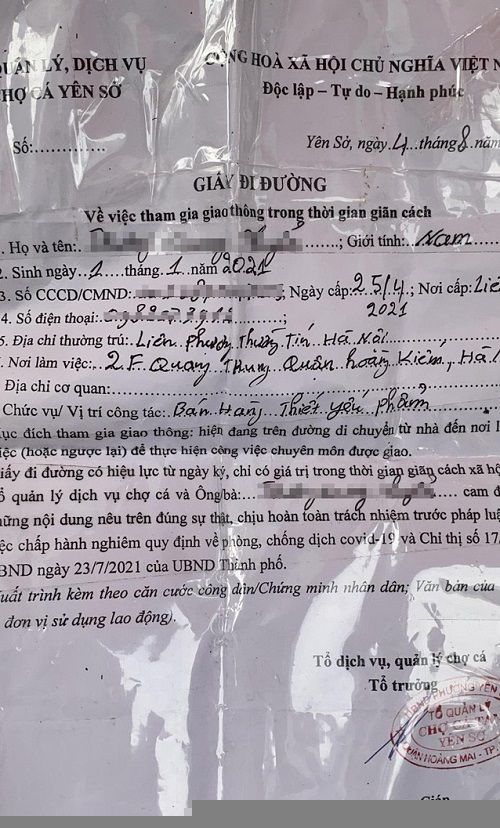 QUẢN LÝ, DỊCH VỤ CỘNG HOÀ XÃ HỘI CHỦ NGHĨA VIỆT N
CHỢ CÁ YÊN SỞ Độc lập – Tự do – Hạnh phúc
Số:............ Yên Sở, ngày 4 tháng 8 năm
GIẤY ĐI ĐƯỜNG
Về việc tham gia giao thông trong thời gian giãn cách
1. Họ và tên: ......; Giới tính: Nam
2. Sinh ngày 1 tháng 1 năm 2021
3. Số CCCD/CMND: ; Ngày cấp: 25/4 ; Nơi cấp:
2021
4. Số điện thoại:
5. Địa chỉ thường trú: Liên Phương Thường Tín Hà Nội
. Nơi làm việc: 2.F. Quang Trung Quận hoàng Kiếm, Hà
Địa chỉ cơ quan:
Chức vụ/ Vị trí công tác: Bán Hàng Thiết yếu phẩm
ục đích tham gia giao thông: hiện đang trên đường di chuyển từ nhà đến nơi l
iệc (hoặc ngược lại) để thực hiện công việc chuyên môn được giao.
iấy đi đường có hiệu lực từ ngày ký, chỉ có giá trị trong thời gian giãn cách xã hộ
ổ quản lý dịch vụ chợ cá và Ông/bà: cam đ
hững nội dung nêu trên đúng sự thật, chịu hoàn toàn trách nhiệm trước pháp luật
ệc chấp hành nghiêm quy định về phòng, chống dịch covid-19 và Chỉ thị số 17/
BND ngày 23/7/2021 của UBND Thành phố.
uất trình kèm theo căn cước công dân/Chứng minh nhân dân; Văn bản của
đơn vị sử dụng lao động).
Tổ dịch vụ, quản lý chợ cá
Tổ trưởng
PHƯỜNG YÊN
TỔ QUẢN LÝ
CHỢ CÁ
YÊN SỞ
QUẬN HOÀNG MAI - TP